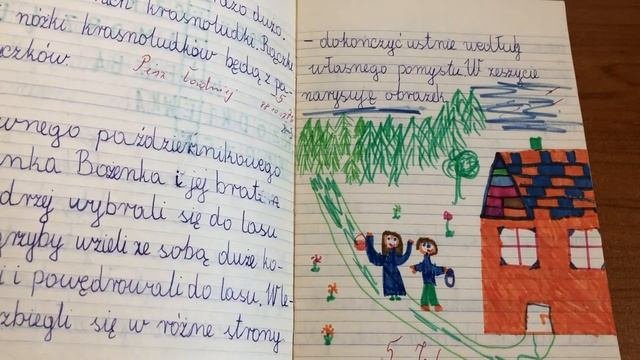 dużo.
krasnoludki.
nóżki krasnoludków będą z
Pisz ładniej
5
wnego październikowego
nka Bożenka i jej brat
drzej wybrali się do lasu
grzyby wzieli ze sobą duże ko-
i i powędrowali do lasu. W le-
zbiegli się w różne strony
– dokończyć ustnie według
własnego pomysłu. W zeszycie
narysuję obrazek.
5